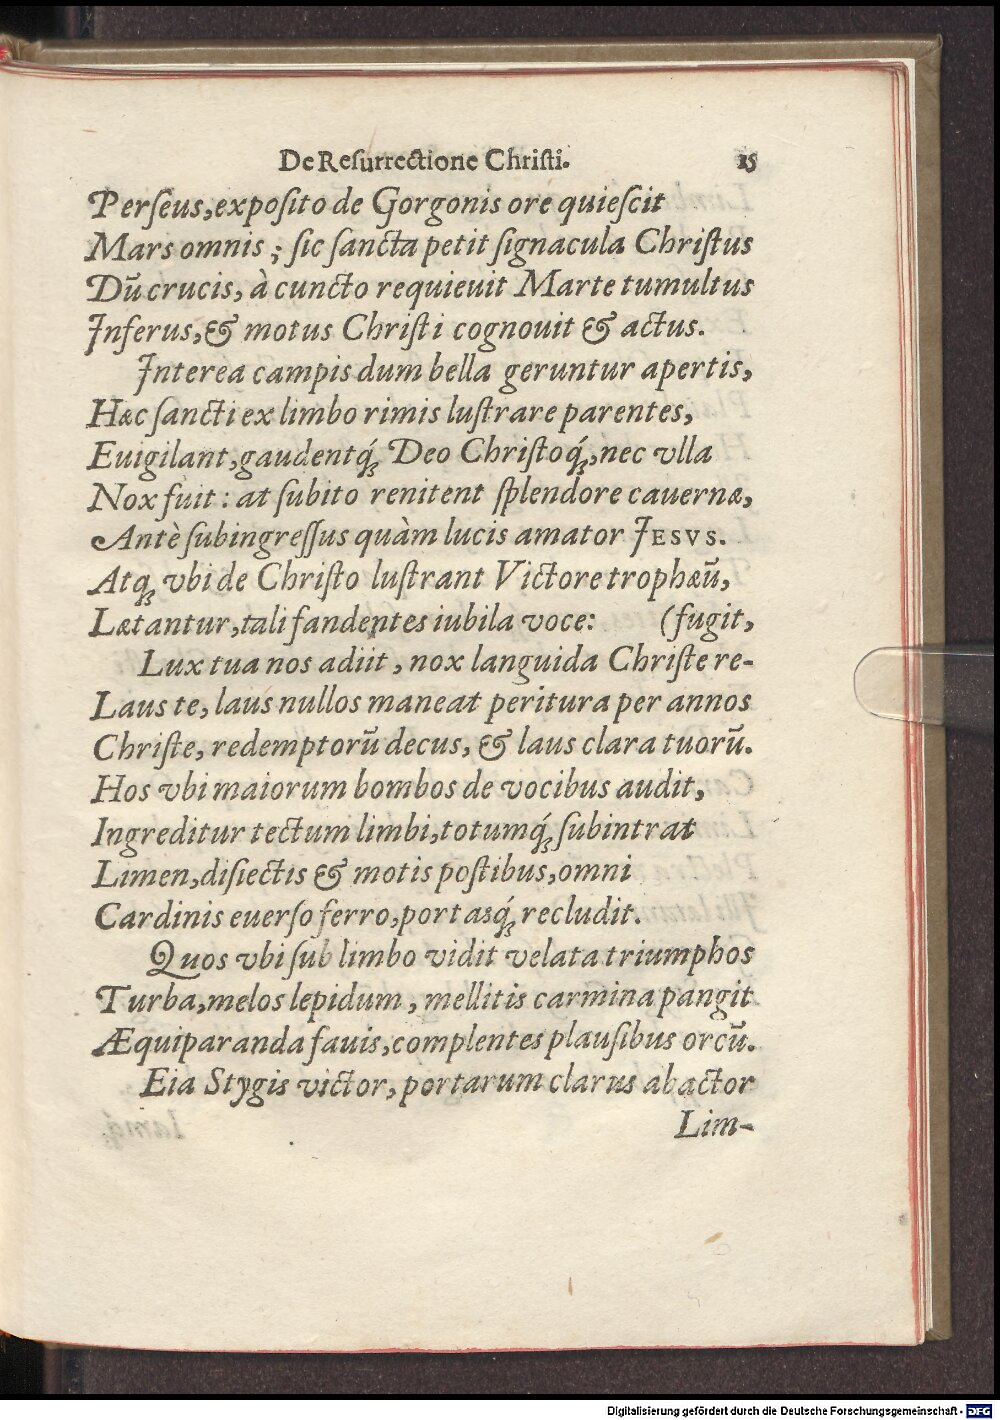 De Reſurrectione Chriſti. 25
Perſeus, expoſito de Gorgonis ore quieſcit
Mars omnis; ſic ſancta petit ſignacula Chriſtus
Dū crucis, à cuncto requieuit Marte tumultus
Inferus, & motus Chriſti cognouit & actus.
Intereá campis dum bella geruntur apertis,
Hæc ſancti ex limbo rimis luſtrare parentes,
Euigilant, gaudentq́; Deo Chriſtoq́;, nec vlla
Nox fuit: at ſubito renitent ſplendore cauernæ,
Antè ſubingreſſus quàm lucis amator IESVS.
Atq; vbi de Chriſto luſtrant Victore trophæū,
Lætantur, tali fandentes iubila voce: (fugit,
Lux tua nos adiit, nox languida Chriſte re-
Laus te, laus nullos maneat peritura per annos
Chriſte, redemptorū decus, & laus clara tuorū.
Hos vbi maiorum bombos de vocibus audit,
Ingreditur tectum limbi, totumq́; ſubintrat
Limen, diſiectis & motis poſtibus, omni
Cardinis euerſo ferro, portasq́; recludit.
Quos vbi ſub limbo vidit velata triumphos
Turba, melos lepidum, mellitis carmina pangit
Æquiparanda fauis, complentes plauſibus orcū.
Eia Stygis victor, portarum clarus abactor
Lim-
Digitalisierung gefördert durch die Deutsche Forschungsgemeinschaft - DFG